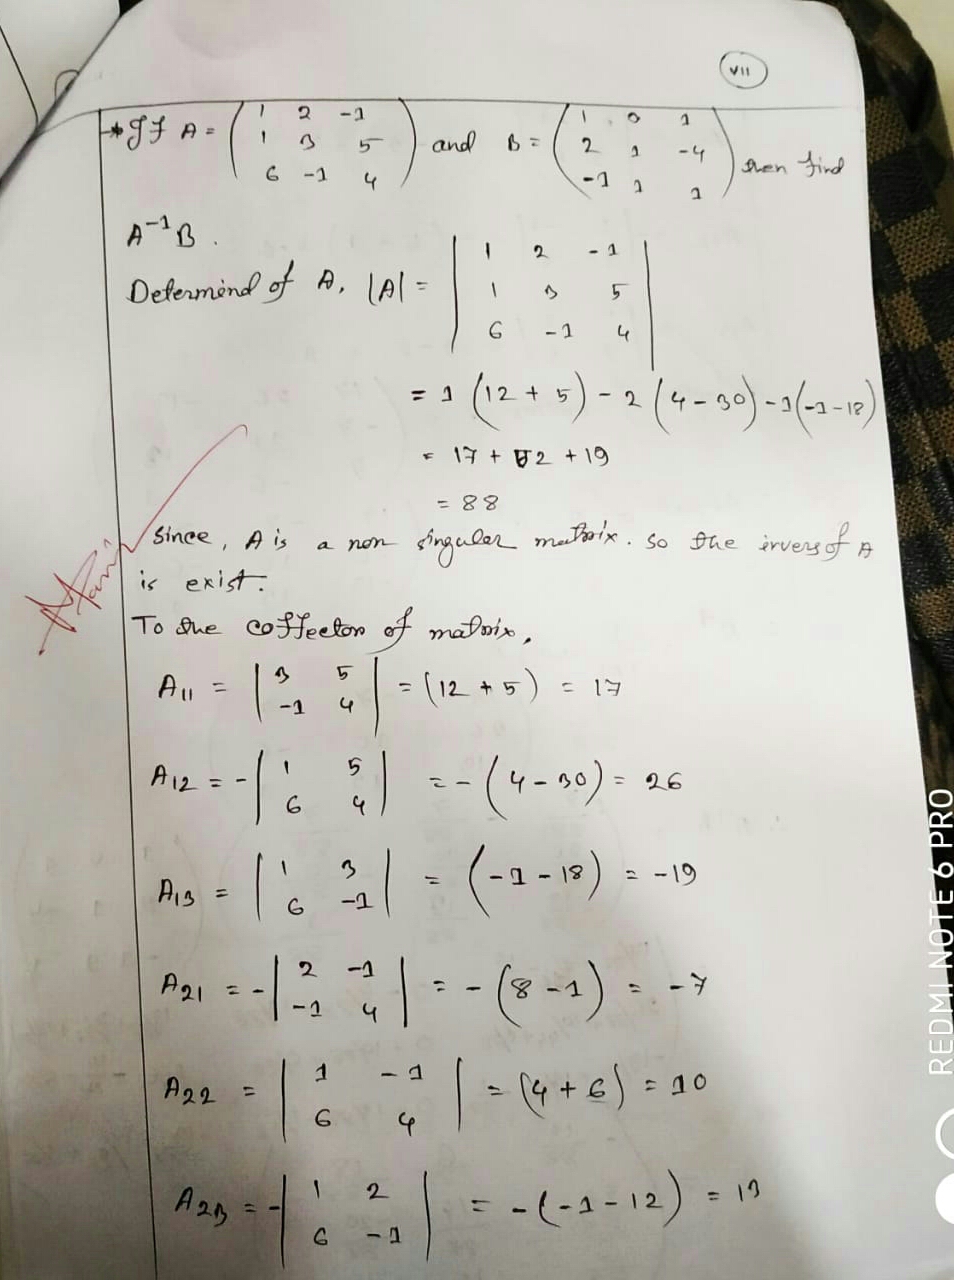 VII
* If A = ( 1 2 -1 / 1 3 5 / 6 -1 4 ) and B = ( 1 0 1 / 2 1 -4 / -1 1 1 ) then find
A⁻¹B.
Determind of A, |A| = | 1 2 -1 / 1 3 5 / 6 -1 4 |
= 1 (12 + 5) - 2 (4 - 30) - 1(-1 - 18)
= 17 + 52 + 19
= 88
Since, A is a non singuler matrix. so the invers of A
is exist.
To the coffector of matrix,
A11 = | 3 5 / -1 4 | = (12 + 5) = 17
A12 = - | 1 5 / 6 4 | = - (4 - 30) = 26
A13 = | 1 3 / 6 -1 | = (-1 - 18) = -19
A21 = - | 2 -1 / -1 4 | = - (8 - 1) = -7
A22 = | 1 -1 / 6 4 | = (4 + 6) = 10
A23 = - | 1 2 / 6 -1 | = - (-1 - 12) = 13
REDMI NOTE 6 PRO